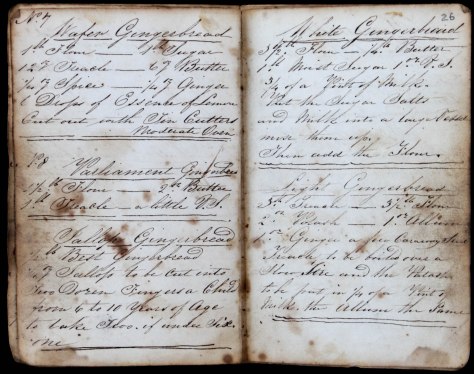 No 7
Wafer Gingerbread
1 lb Flour — 1 lb Sugar
12 oz Treacle — 6 oz Butter
1/4 oz Spice — 1/4 oz Ginger
6 Drops of Essence of Lemon
Cut out with Tin Cutters
Moderate Oven
No 8
Parliament Gingerbread
Flour — Butter
1 lb Treacle — a little V.S.
Jallop Gingerbread
Best Gingerbread
Jallop to be Cut into
Two Dozen Fingers a Child
from 6 to 10 Years of Age
to take Two. if under Six
one
26
White Gingerbread
Flour — Butter
1 lb Moist Sugar 1 oz V.S.
3/4 of a Pint of Milk
Put the Sugar Salts
and Milk into a large
mix them up
Then add the Flour.
Light Gingerbread
Treacle — Flour
Pearlash — 1 oz Allum
Ginger a few Caraway Seeds
Treacle to be boild over a
Slow Fire and the
to be put in 1/4 of a Pint of
Milk. the Allum the Same